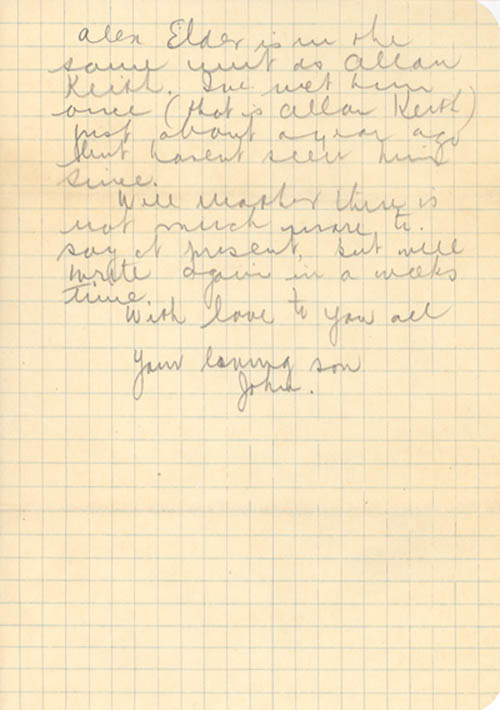 Alex Elder is in the
same unit as Allan
Keith. Ive met him
once (that is Allan Keith)
just about a year ago
but havent seen him
since.
Well mother there is
not much more to
say at present, but will
write again in a weeks
time.
With love to you all
Your loving son
John.